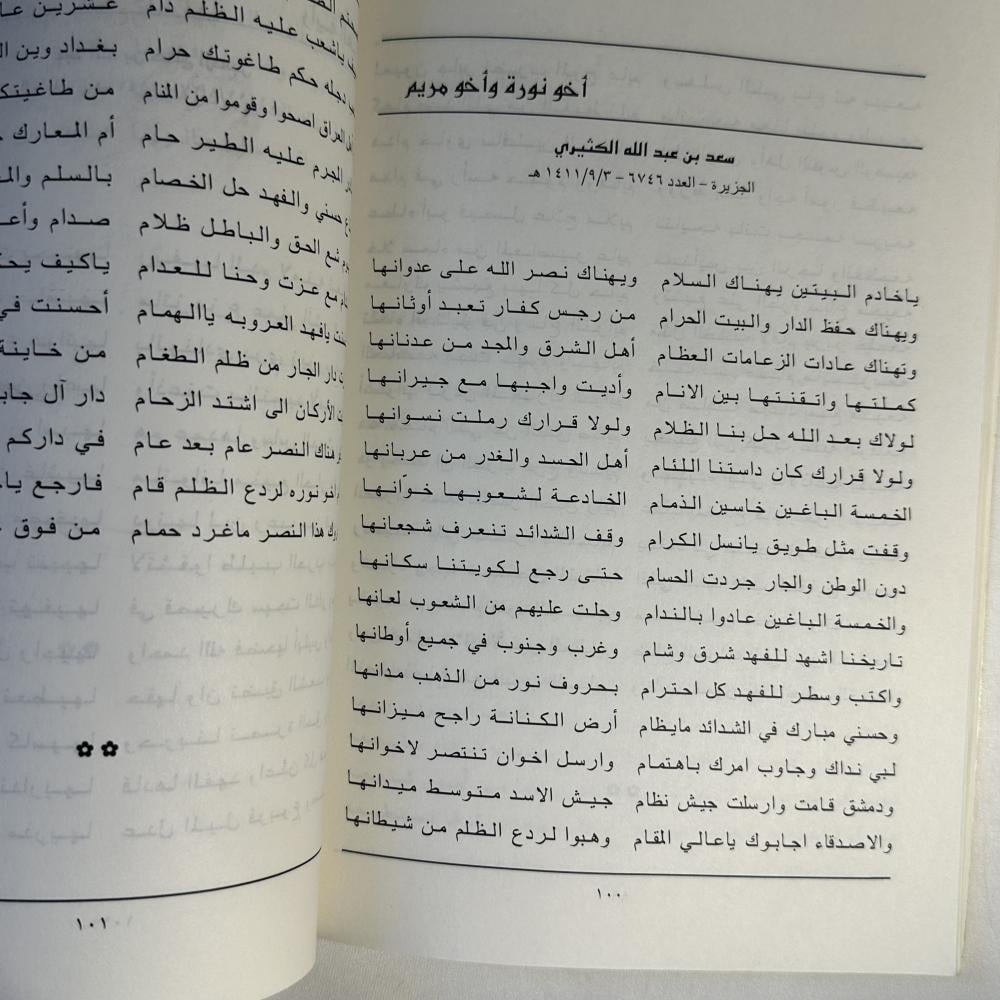 أخو نورة وأخو مريم
سعد بن عبد الله الكثيري
الجزيرة - العدد ٦٧٤٦ - ١٤١١/٩/٣ هـ
ياخادم البيتين يهناك السلام ويهناك نصر الله على عدوانها
ويهناك حفظ الدار والبيت الحرام من رجس كفار تعبد أوثانها
وتهناك عادات الزعامات العظام أهل الشرق والمجد من عدنانها
كملتها واتقنتها بين الانام وأديت واجبها مع جيرانها
لولاك بعد الله حل بنا الظلام ولولا قرارك رملت نسوانها
ولولا قرارك كان داستنا اللئام أهل الحسد والغدر من عربانها
الخمسة الباغين خاسين الذمام الخادعة لشعوبها خوّانها
وقفت مثل طويق يانسل الكرام وقف الشدائد تنعرف شجعانها
دون الوطن والجار جردت الحسام حتى رجع لكويتنا سكانها
والخمسة الباغين عادوا بالندام وحلت عليهم من الشعوب لعانها
تاريخنا اشهد للفهد شرق وشام وغرب وجنوب في جميع أوطانها
واكتب وسطر للفهد كل احترام بحروف نور من الذهب مدانها
وحسني مبارك في الشدائد مايظام أرض الكنانة راجح ميزانها
لبي نداك وجاوب امرك باهتمام وارسل اخوان تنتصر لاخوانها
ودمشق قامت وارسلت جيش نظام جيش الاسد متوسط ميدانها
والاصدقاء اجابوك ياعالي المقام وهبوا لردع الظلم من شيطانها
١٠٠
ياشعب عليه الظلم دام عشرين
دجله حكم طاغوتك حرام بغداد وين
العراق اصحوا وقوموا من المنام من طاغيتك
المجرم عليه الطير حام أم المعارك
حسني والفهد حل الخصام بالسلم
شع الحق والباطل ظلام صدام
مع عزت وحنا للعدام ياكيف
يافهد العروبه ياالهمام أحسنت في
دار الجار من ظلم الطغام من خاينة
الأركان الى اشتد الزحام دار آل
هناك النصر عام بعد عام في داركم
نوره لردع الظلم قام فارجع
هذا النصر ماغرد حمام من فوق
١٠١